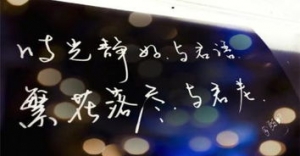 时光静好,与君语.
繁花落尽,与君老.